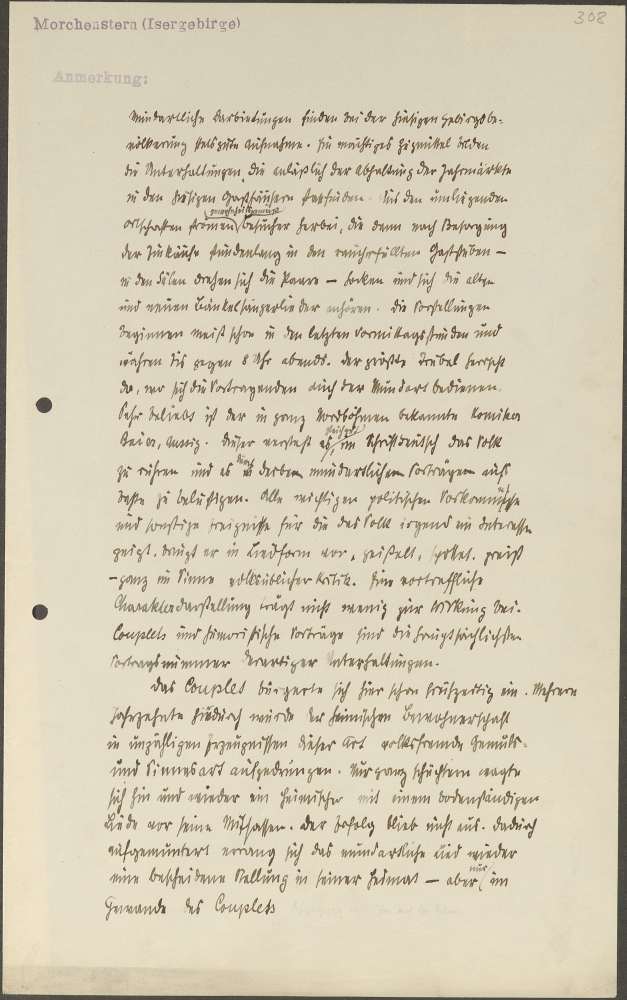 308
Morchenstern (Isergebirge)
Anmerkung:
Mundartliche Darbietungen finden bei der hiesigen Gebirgsbe-
völkerung stets gute Aufnahme. Ein wichtiges Hilfsmittel bilden
die Unterhaltungen, die anläßlich der Abhaltung der Jahrmärkte
in den hiesigen Gasthäusern stattfinden. Aus den umliegenden
Ortschaften strömen Besucher herbei, die dann nach Besorgung
der Einkäufe stundenlang in den raucherfüllten Gaststuben –
in den Sälen drehen sich die Paare – hocken und sich die alten
und neuen Bänkelsängerlieder anhören. Die Vorstellungen
beginnen meist schon in den letzten Vormittagsstunden und
währen bis gegen 8 Uhr abends. Der größte Trubel herrscht
da, wo sich die Vortragenden auch der Mundart bedienen.
Sehr beliebt ist der in ganz Nordböhmen bekannte Komiker
Aussig. Dieser versteht es, im Schriftdeutsch das Volk
zu rühren und es durch derben mundartlichen Vorträgen aufs
beste zu belustigen. Alle wichtigen politischen Vorkommnisse
und sonstige Ereignisse für die das Volk irgend ein Interesse
zeigt, bringt er in Liedform vor, geißelt, spottet, preist
– ganz im Sinne volksüblicher Kritik. Eine vortreffliche
Charakterdarstellung trägt nicht wenig zur Wirkung bei.
Couplets und humoristische Vorträge sind die hauptsächlichsten
Vortragsnummer derartiger Unterhaltungen.
Das Couplet bürgerte sich hier schon frühzeitig ein. Mehrere
Jahrzehnte hindurch wurde der heimischen Bewohnerschaft
in unzähligen Erzeugnissen dieser Art volksfremde Gemüts-
und Sinnesart aufgedrungen. Nur ganz schüchtern wagte
sich hin und wieder ein Heimischer mit einem bodenständigen
Liede vor seine Mitsassen. Der Erfolg blieb nicht aus. Dadurch
aufgemuntert errang sich das mundartliche Lied wieder
eine bescheidene Stellung in seiner Heimat – aber nur im
Gewande des Couplets